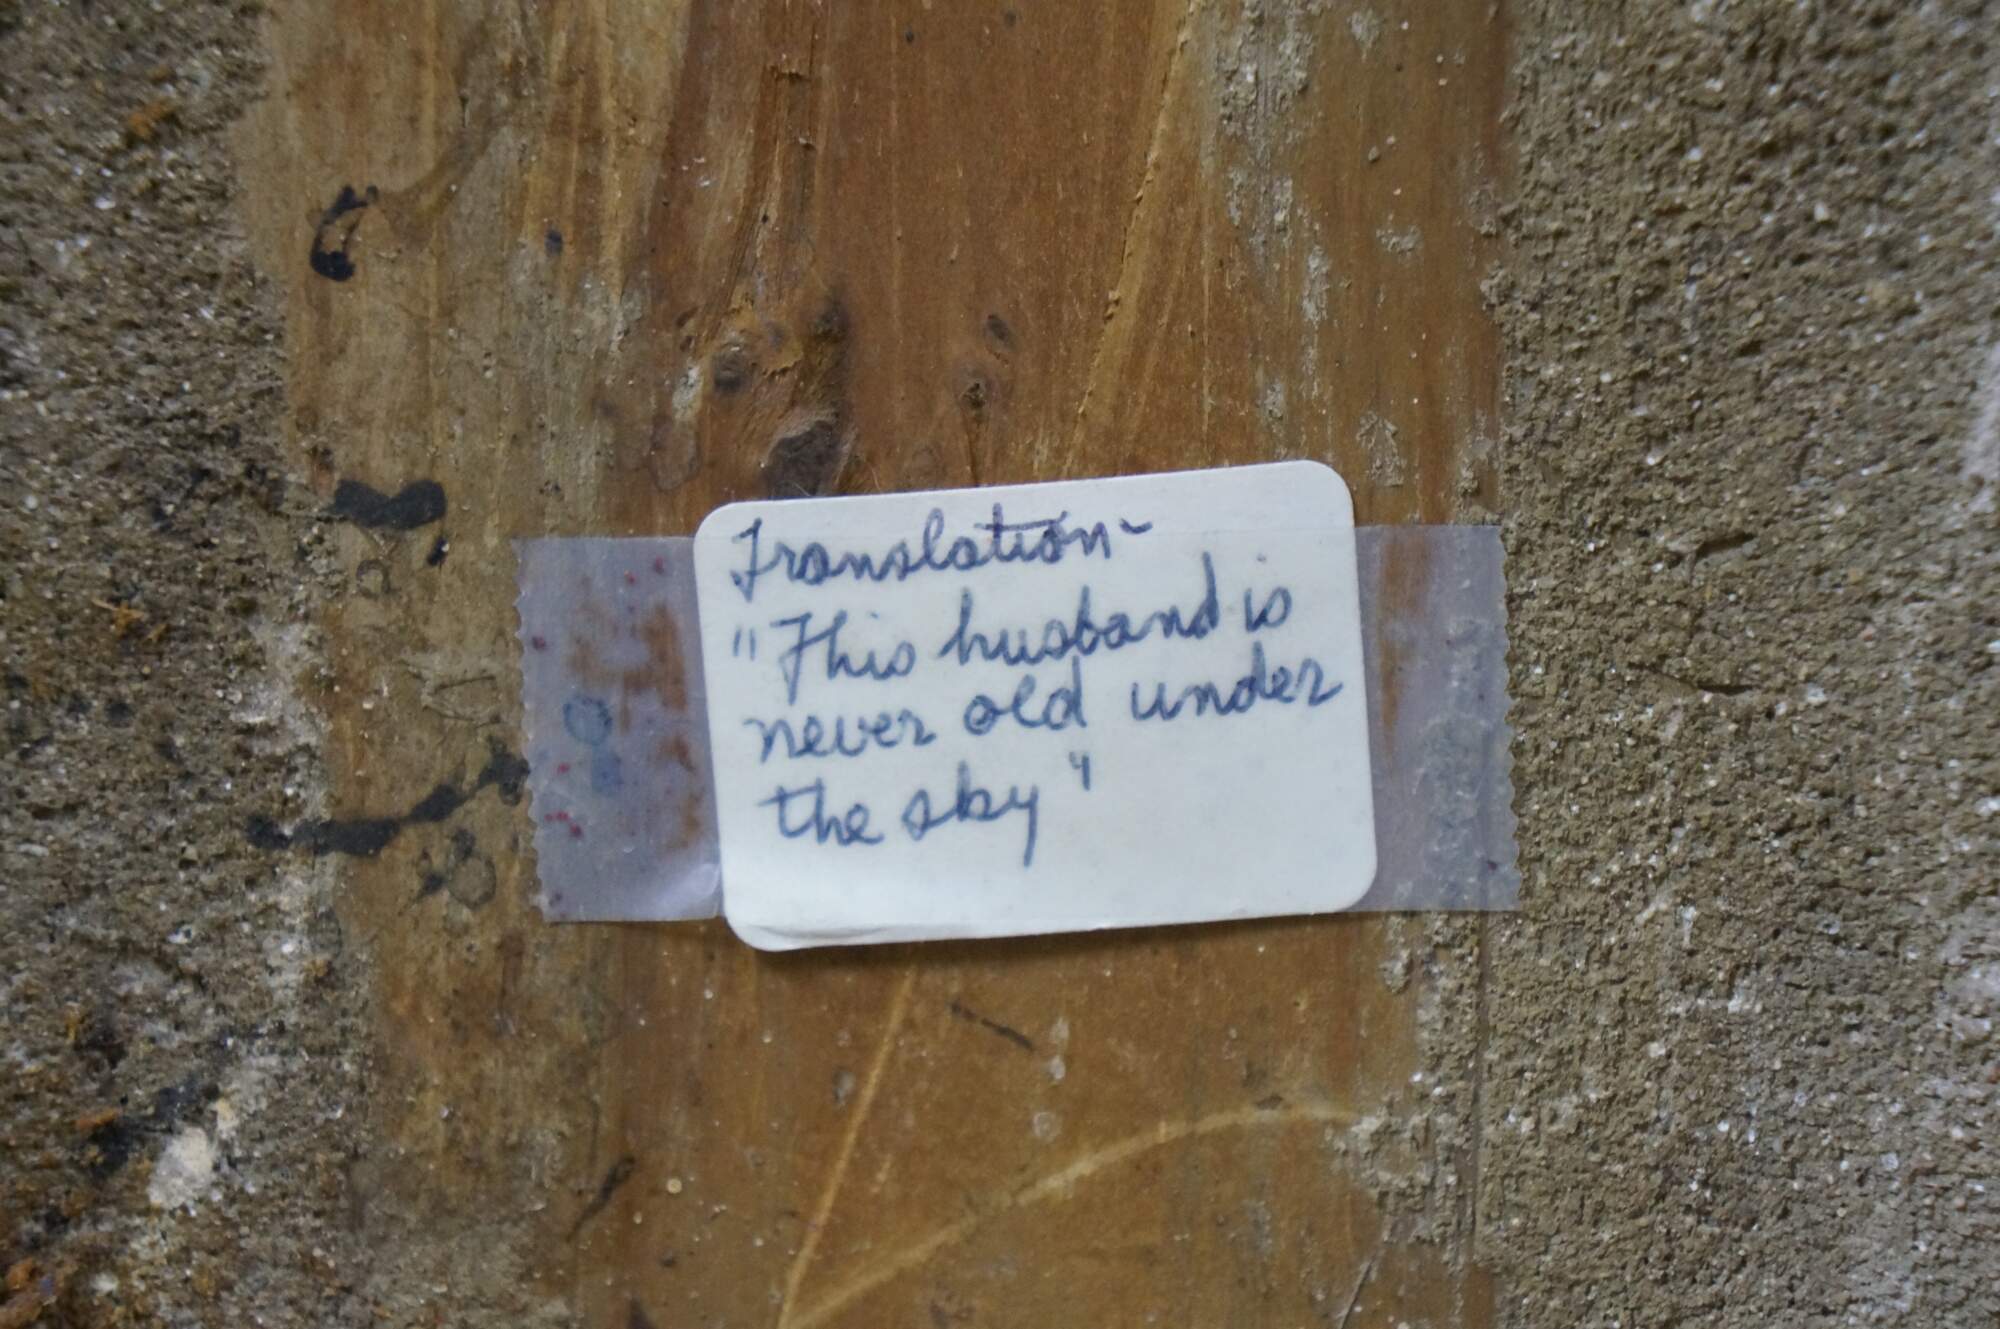 Translation-
"This husband is
never old under
the sky"